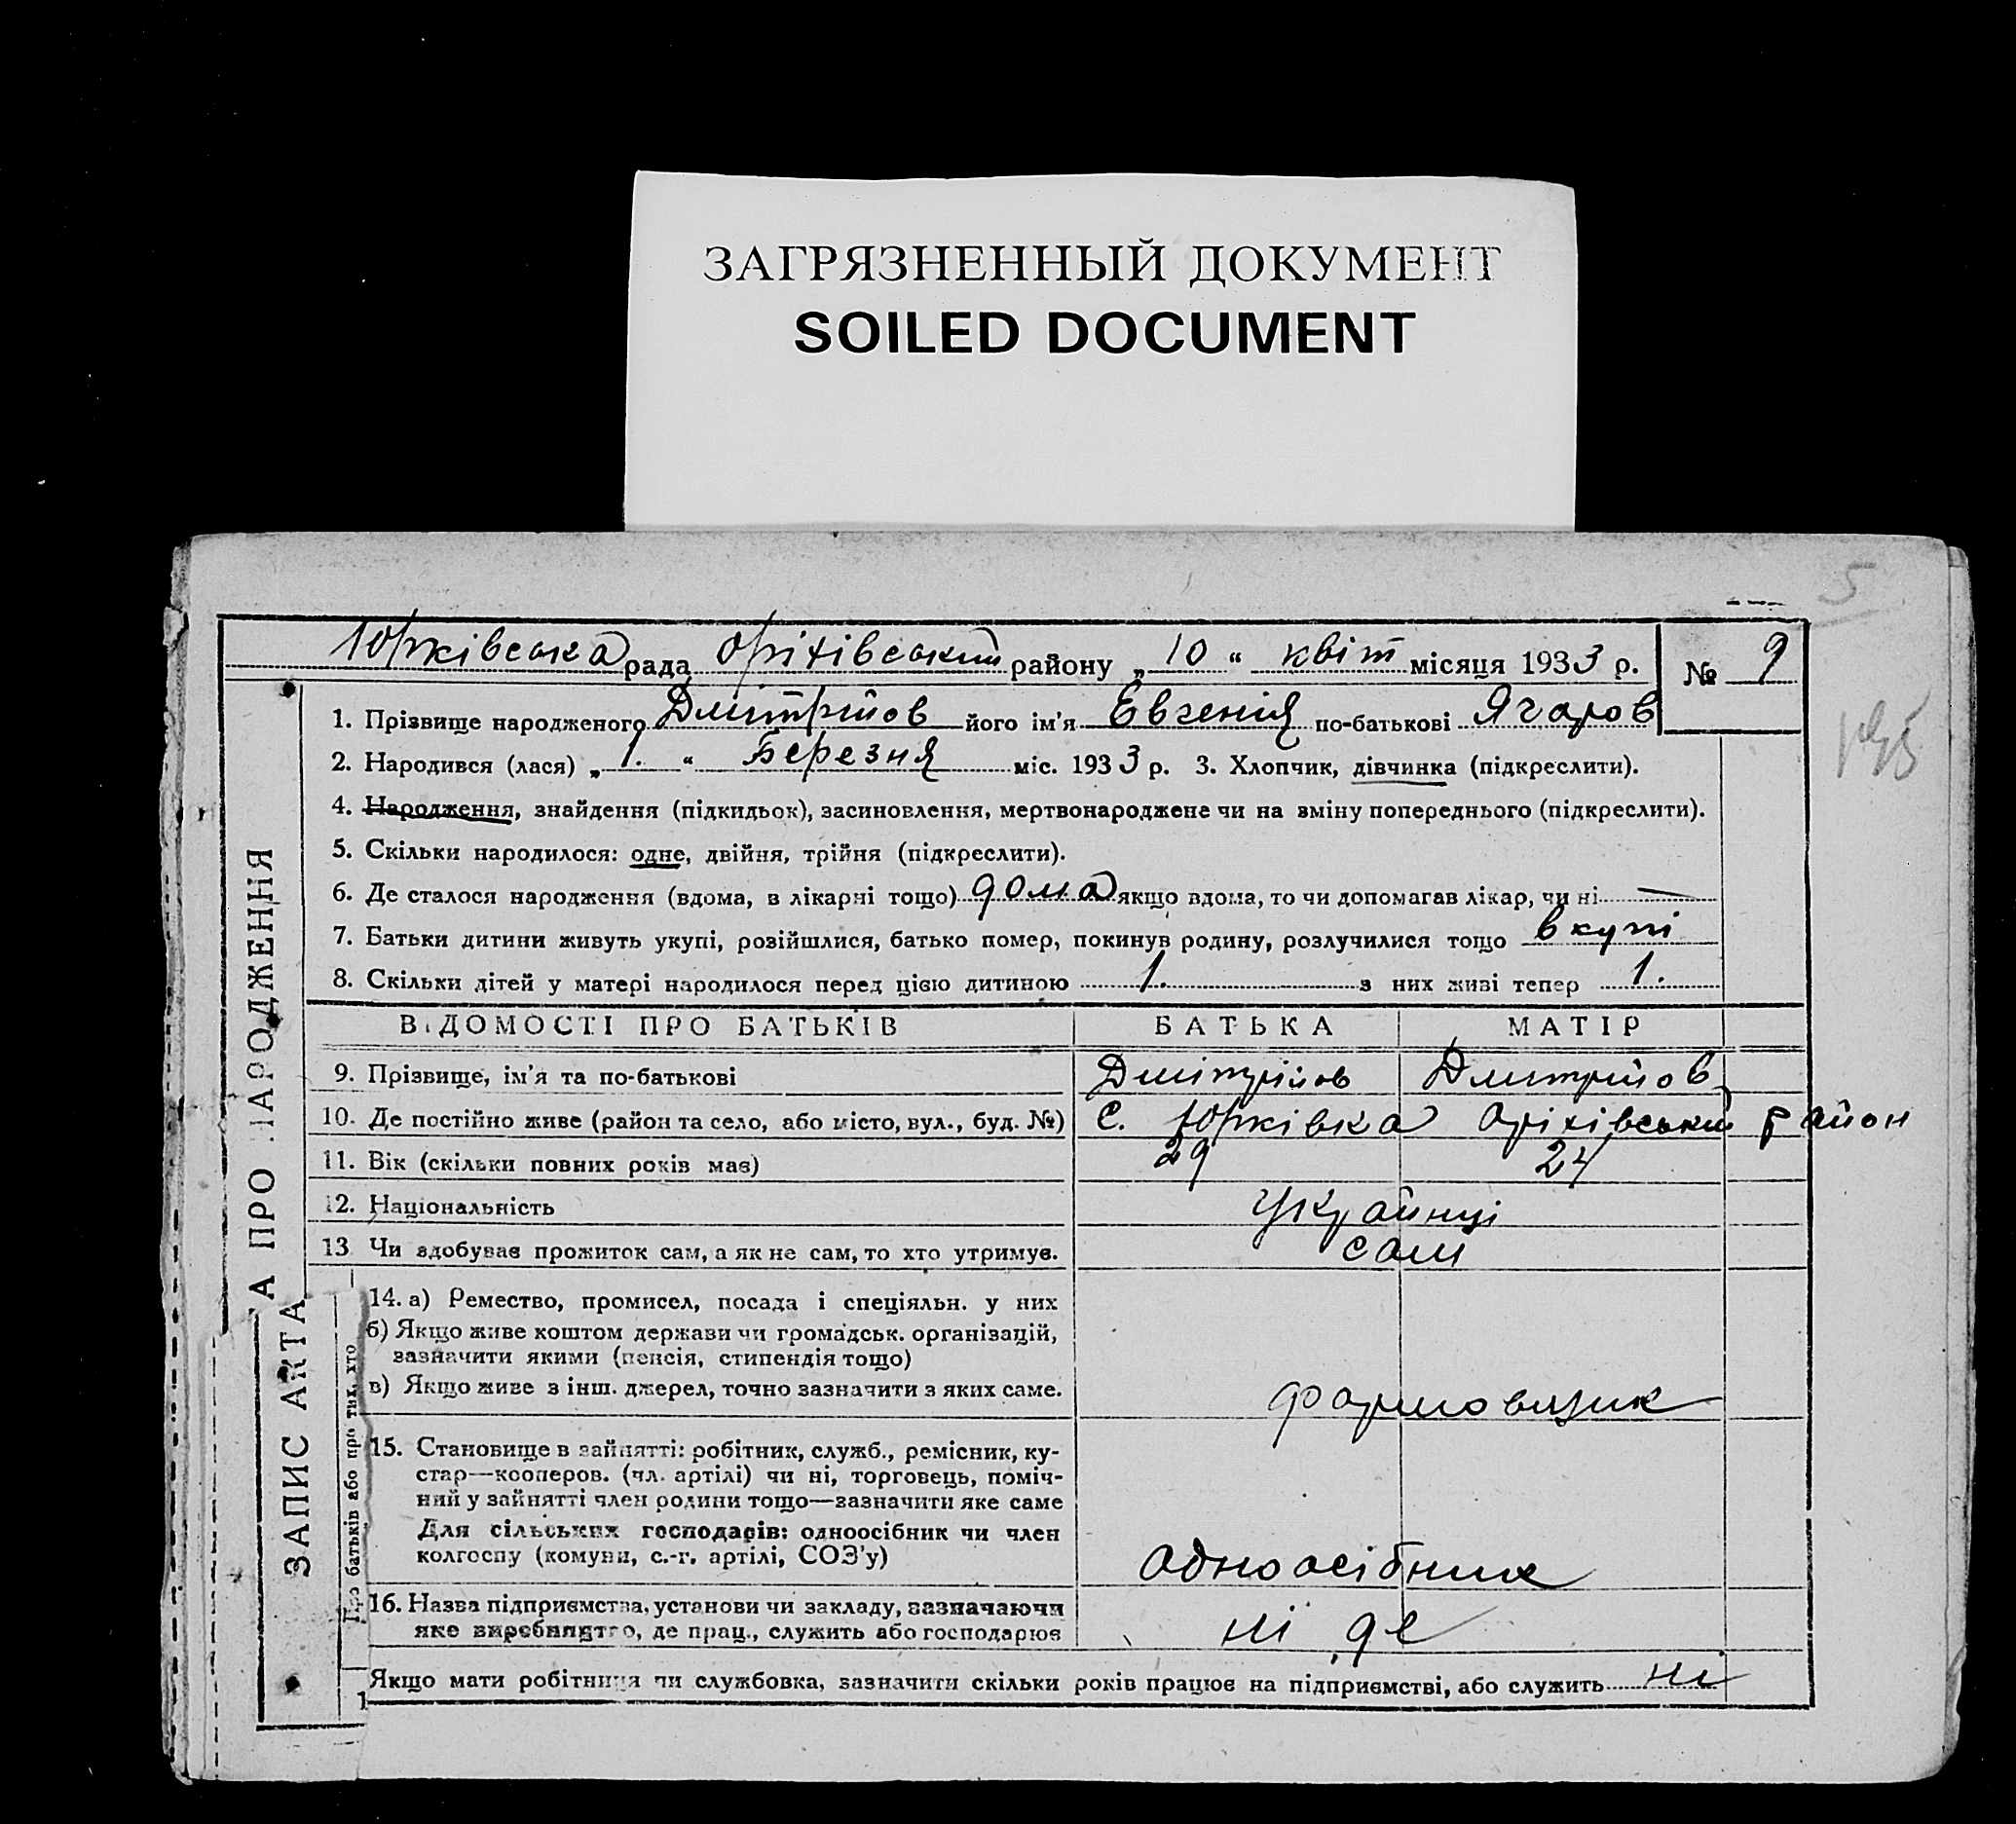 ЗАГРЯЗНЕННЫЙ ДОКУМЕНТ
SOILED DOCUMENT
5
Юрківська рада Оріхівський району „10“ квіт місяця 1933 р. № 9
1. Прізвище народженого Дмитрійов його ім'я Евгенія по-батькові Ягоров
2. Народився (лася) „1.“ Березня міс. 1933 р. 3. Хлопчик, дівчинка (підкреслити).
4. Народження, знайдення (підкидьок), засиновлення, мертвонароджене чи на зміну попереднього (підкреслити).
5. Скільки народилося: одне, двійня, трійня (підкреслити).
6. Де сталося народження (вдома, в лікарні тощо) дома якщо вдома, то чи допомагав лікар, чи ні —
7. Батьки дитини живуть укупі, розійшлися, батько помер, покинув родину, розлучилися тощо вкупі
8. Скільки дітей у матері народилося перед цією дитиною 1. з них живі тепер 1.
ВІДОМОСТІ ПРО БАТЬКІВ БАТЬКА МАТІР
9. Прізвище, ім'я та по-батькові Дмітрійов Дмитрійов
10. Де постійно живе (район та село, або місто, вул., буд. №) с. Юрківка Оріхівський район
11. Вік (скільки повних років має) 29 24
12. Національність Українці
13 Чи здобуває прожиток сам, а як не сам, то хто утримує. сам
14. а) Ремество, промисел, посада і спеціяльн. у них
б) Якщо живе коштом держави чи громадськ. організацій,
зазначити якими (пенсія, стипендія тощо)
в) Якщо живе з інш. джерел, точно зазначити з яких саме.
формовщик
15. Становище в зайнятті: робітник, служб., ремісник, ку-
стар—кооперов. (чл. артілі) чи ні, торговець, поміч-
ний у зайнятті член родини тощо—зазначити яке саме
Для сільських господарів: одноосібник чи член
колгоспу (комуни, с.-г. артілі, СОЗ'у) одноосібник
16. Назва підприємства, установи чи закладу, зазначаючи
яке виробництво, де прац., служить або господарює ні де
Якщо мати робітниця чи службовка, зазначити скільки років працює на підприємстві, або служить ні
1
ЗАПИС АКТА ПРО НАРОДЖЕННЯ
Про батьків або про тих, хто